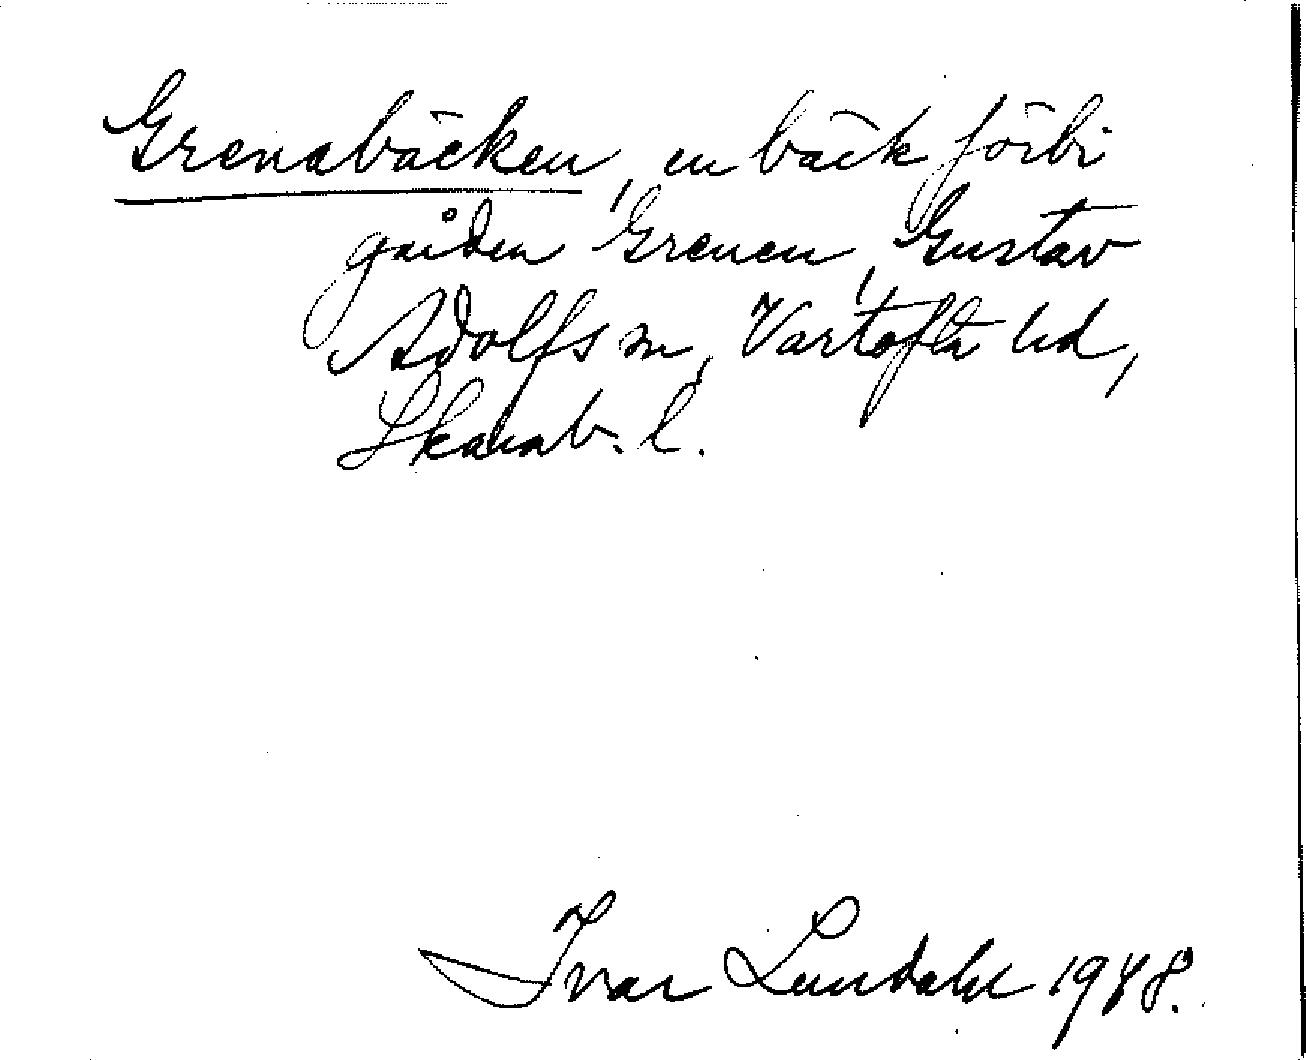 Grenabäcken, en bäck förbi
gården Grenen, Gustav
Adolfs sn, Vartofta hd,
Skarab. l.
Ivar Lundahl 1948.